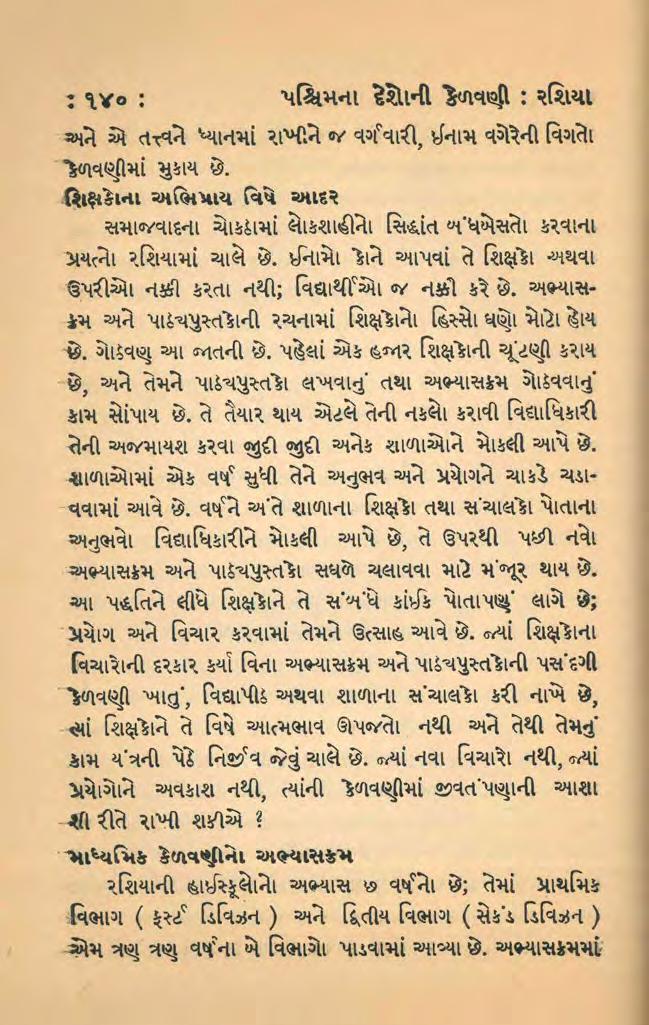 : ૧૪૦ : પશ્ચિમના દેશોની કેળવણી : રશિયા
અને એ તત્ત્વને ધ્યાનમાં રાખીને જ વર્ગવારી, ઈનામ વગેરેની વિગતો
કેળવણીમાં મુકાય છે.
શિક્ષકોના અભિપ્રાય વિષે આદર
સમાજવાદના ચોકઠામાં લોકશાહીનો સિદ્ધાંત બંધબેસતો કરવાના
પ્રયત્નો રશિયામાં ચાલે છે. ઈનામો કોને આપવાં તે શિક્ષકો અથવા
ઉપરીઓ નક્કી કરતા નથી; વિદ્યાર્થીઓ જ નક્કી કરે છે. અભ્યાસ-
ક્રમ અને પાઠ્યપુસ્તકોની રચનામાં શિક્ષકોનો હિસ્સો ઘણો મોટો હોય
છે. ગોઠવણ આ જાતની છે. પહેલાં એક હજાર શિક્ષકોની ચૂંટણી કરાય
છે, અને તેમને પાઠ્યપુસ્તકો લખવાનું તથા અભ્યાસક્રમ ગોઠવવાનું
કામ સોંપાય છે. તે તૈયાર થાય એટલે તેની નકલો કરાવી વિદ્યાધિકારી
તેની અજમાયશ કરવા જુદી જુદી અનેક શાળાઓને મોકલી આપે છે.
શાળાઓમાં એક વર્ષ સુધી તેને અનુભવ અને પ્રયોગને ચાકડે ચડા-
વવામાં આવે છે. વર્ષને અંતે શાળાના શિક્ષકો તથા સંચાલકો પોતાના
અનુભવો વિદ્યાધિકારીને મોકલી આપે છે, તે ઉપરથી પછી નવો
અભ્યાસક્રમ અને પાઠ્યપુસ્તકો સઘળે ચલાવવા માટે મંજૂર થાય છે.
આ પદ્ધતિને લીધે શિક્ષકોને તે સંબંધે કાંઈક પોતાપણું લાગે છે;
પ્રયોગ અને વિચાર કરવામાં તેમને ઉત્સાહ આવે છે. જ્યાં શિક્ષકોના
વિચારોની દરકાર કર્યા વિના અભ્યાસક્રમ અને પાઠ્યપુસ્તકોની પસંદગી
કેળવણી ખાતું, વિદ્યાપીઠ અથવા શાળાના સંચાલકો કરી નાખે છે,
ત્યાં શિક્ષકોને તે વિષે આત્મભાવ ઊપજતો નથી અને તેથી તેમનું
કામ યંત્રની પેઠે નિર્જીવ જેવું ચાલે છે. જ્યાં નવા વિચારો નથી, જ્યાં
પ્રયોગોને અવકાશ નથી, ત્યાંની કેળવણીમાં જીવતંપણાની આશા
શી રીતે રાખી શકીએ ?
માધ્યમિક કેળવણીનો અભ્યાસક્રમ
રશિયાની હાઈસ્કૂલોનો અભ્યાસ ૭ વર્ષનો છે; તેમાં પ્રાથમિક
વિભાગ ( ફર્સ્ટ ડિવિઝન ) અને દ્વિતીય વિભાગ ( સેકંડ ડિવિઝન )
એમ ત્રણ ત્રણ વર્ષના બે વિભાગો પાડવામાં આવ્યા છે. અભ્યાસક્રમમાં